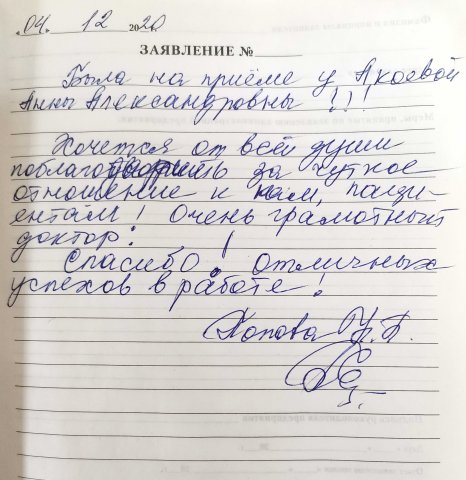 04. 12 2020
ЗАЯВЛЕНИЕ №
Была на приёме у Акоевой
Анны Александровны !!!
Хочется от всей души
поблагодарить за чуткое
отношение к нам, паци-
ентам! Очень грамотный
доктор!
Спасибо! Отличных
успехов в работе!